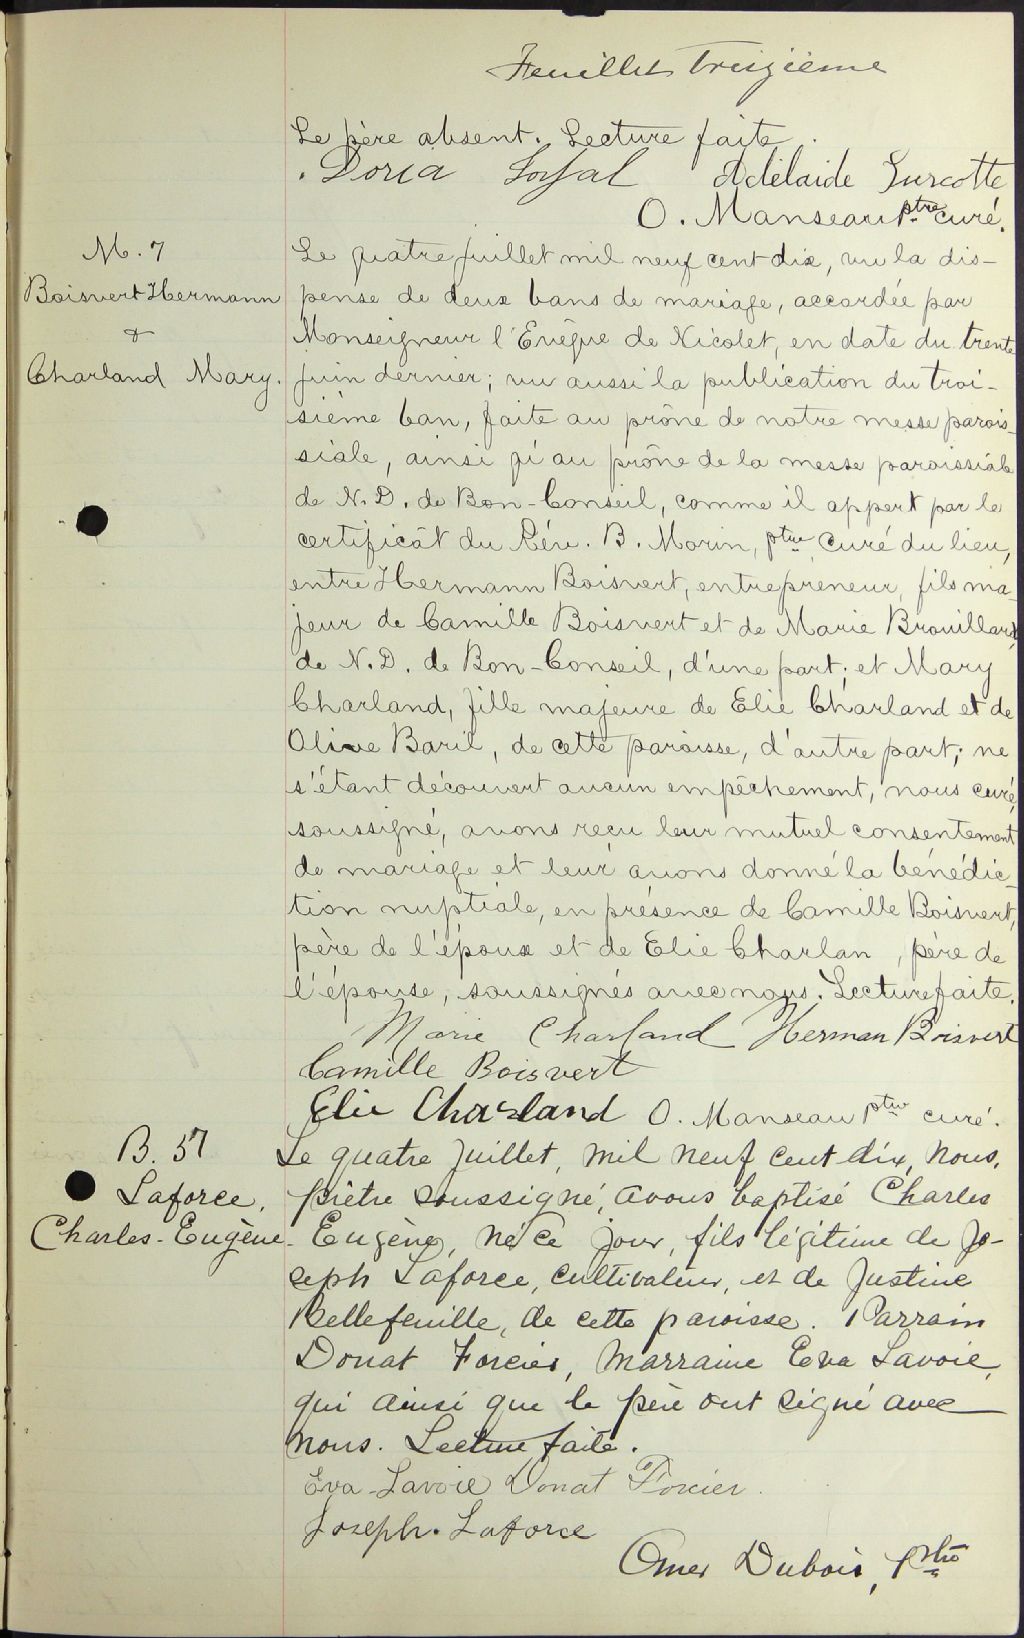 Feuillet treizième
Le père absent. Lecture faite.
Doria Loyal Adélaide Turcotte
O. Manseau ptre curé.
M. 7
Boisvert Hermann
&
Charland Mary.
Le quatre juillet mil neuf cent dix, vu la dis-
pense de deux bans de mariage, accordée par
Monseigneur l'Evêque de Nicolet, en date du trente
juin dernier; vu aussi la publication du troi-
sième ban, faite au prône de notre messe parois-
siale, ainsi qu'au prône de la messe paroissiale
de N. D. de Bon-Conseil, comme il appert par le
certificat du Rév. B. Morin, ptre, curé du lieu,
entre Hermann Boisvert, entrepreneur, fils ma-
jeur de Camille Boisvert et de Marie Brouillard,
de N. D. de Bon-Conseil, d'une part; et Mary
Charland, fille majeure de Elie Charland et de
Olive Baril, de cette paroisse, d'autre part; ne
s'étant découvert aucun empêchement, nous curé,
soussigné, avons reçu leur mutuel consentement
de mariage et leur avons donné la bénédic-
tion nuptiale, en présence de Camille Boisvert,
père de l'époux et de Elie Charlan, père de
l'épouse, soussignés avec nous. Lecture faite.
Marie Charland Herman Boisvert
Camille Boisvert
Elie Charland O. Manseau ptre curé.
B. 57
Laforce,
Charles-Eugène
Le quatre juillet, mil neuf cent dix, nous,
prêtre soussigné, avons baptisé Charles
Eugène, né ce jour, fils légitime de Jo-
seph Laforce, cultivateur, et de Justine
Bellefeuille, de cette paroisse. Parrain
Donat Forcier, Marraine Eva Lavoie,
qui ainsi que le père ont signé avec
nous. Lecture faite.
Eva Lavoie Donat Forcier.
Joseph. Laforce
Omer Dubois, Ptre